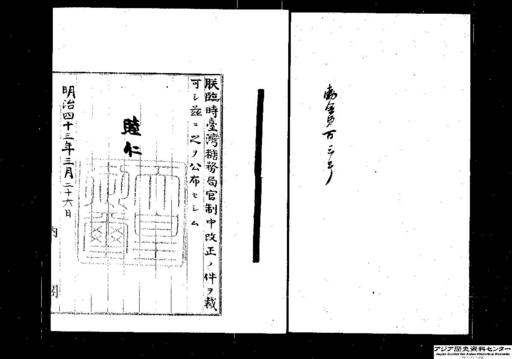 朕臨時臺灣糖務局官制中改正ノ件ヲ裁
可シ茲ニ之ヲ公布セシム
睦仁
天皇
御璽
明治四十三年三月二十六日
内閣
アジア歴史資料センター
Japan Center for Asian Historical Records